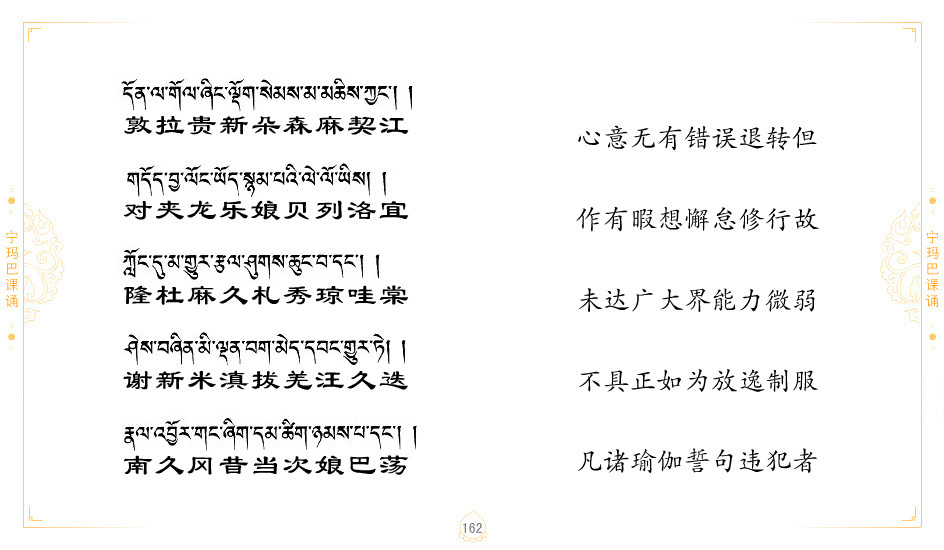 དོན་ལ་གོལ་ཞིང་ལྡོག་སེམས་མ་མཆིས་ཀྱང༌། །
敦拉贵新朵森麻契江
གདོད་བྱ་ལོང་ཡོད་སྙམ་པའི་ལེ་ལོ་ཡིས། །
对夹龙乐娘贝列洛宜
ཀློང་དུ་མ་གྱུར་རྩལ་ཤུགས་ཆུང་བ་དང༌། །
隆杜麻久札秀琼哇棠
ཤེས་བཞིན་མི་ལྡན་བག་མེད་དབང་གྱུར་ཏེ། །
谢新米滇拔羌汪久迭
རྣལ་འབྱོར་གང་ཞིག་དམ་ཚིག་ཉམས་པ་དང༌། །
南久冈昔当次娘巴荡
心意无有错误退转但
作有暇想懈怠修行故
未达广大界能力微弱
不具正如为放逸制服
凡诸瑜伽誓句违犯者
宁玛巴课诵
宁玛巴课诵
162